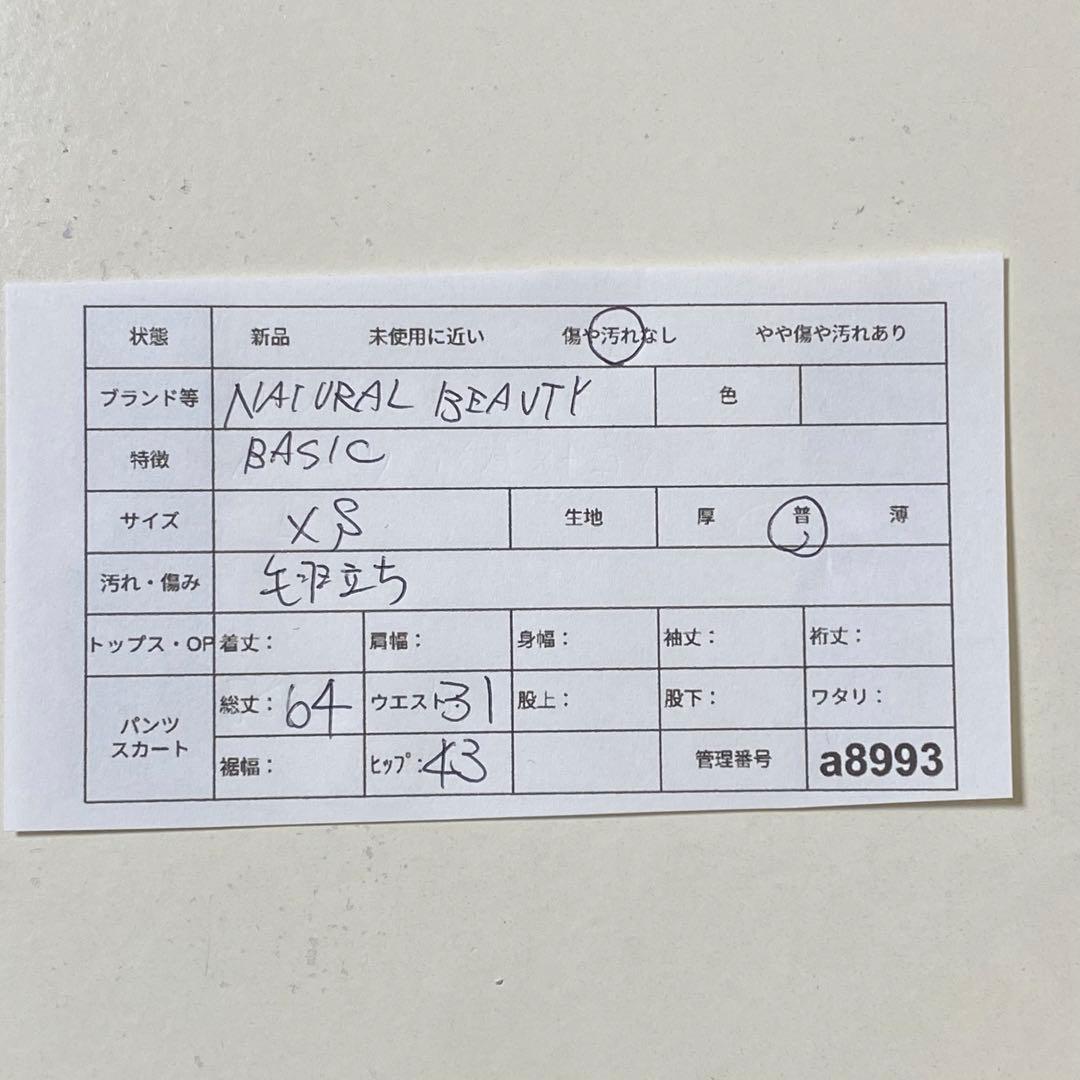 状態 新品 未使用に近い 傷や汚れなし やや傷や汚れあり
ブランド等 NATURAL BEAUTY 色
特徴 BASIC
サイズ XS 生地 厚 普 薄
汚れ・傷み 毛羽立ち
トップス・OP 着丈： 肩幅： 身幅： 袖丈： 裄丈：
パンツ
スカート
総丈：64 ウエスト31 股上： 股下： ワタリ：
裾幅： ﾋｯﾌﾟ：43 管理番号 a8993